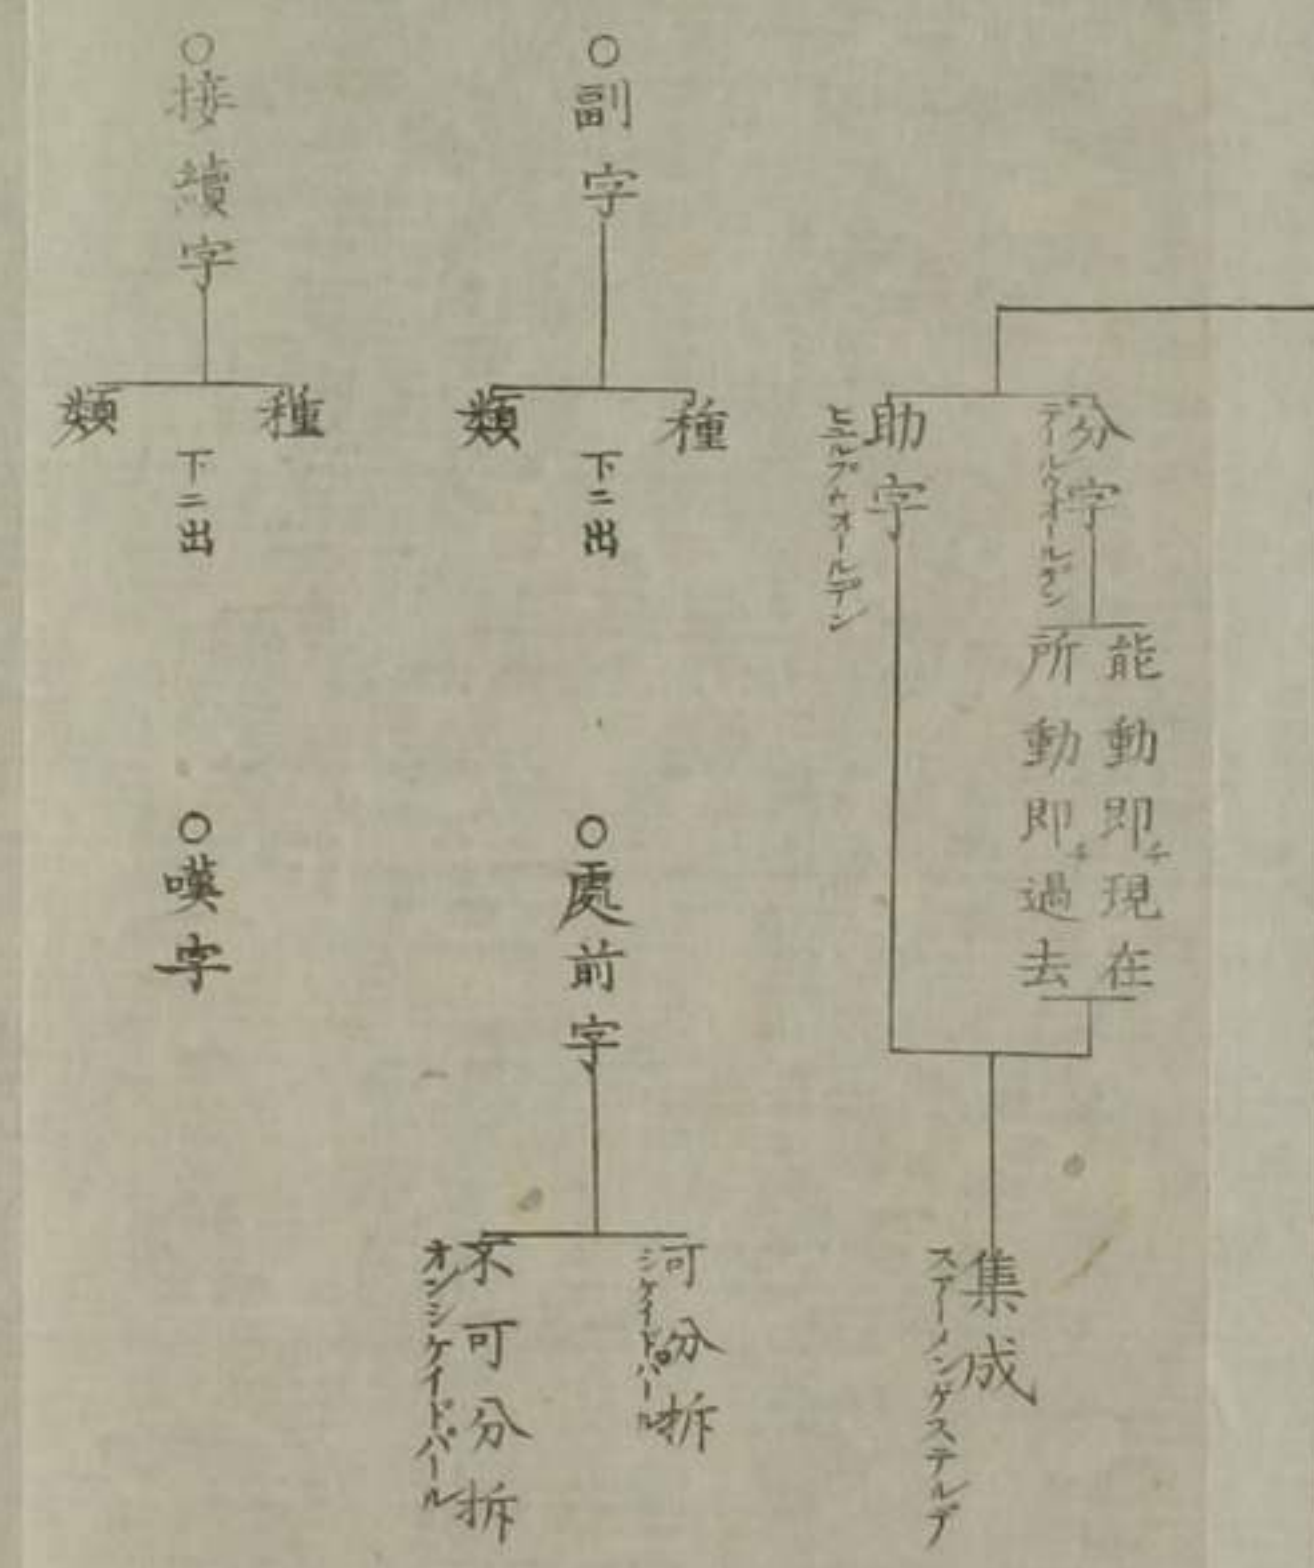 分字
デールウオールデン
能動即チ現在
所動即チ過去
助字
ヒュルプウオールデン
集成
スアーメンゲステルデ
○副字
種
類
下ニ出
○處前字
可分拆
シケイドバール
不可分拆
オンシケイドバール
○接續字
種
類
下ニ出
○嘆字